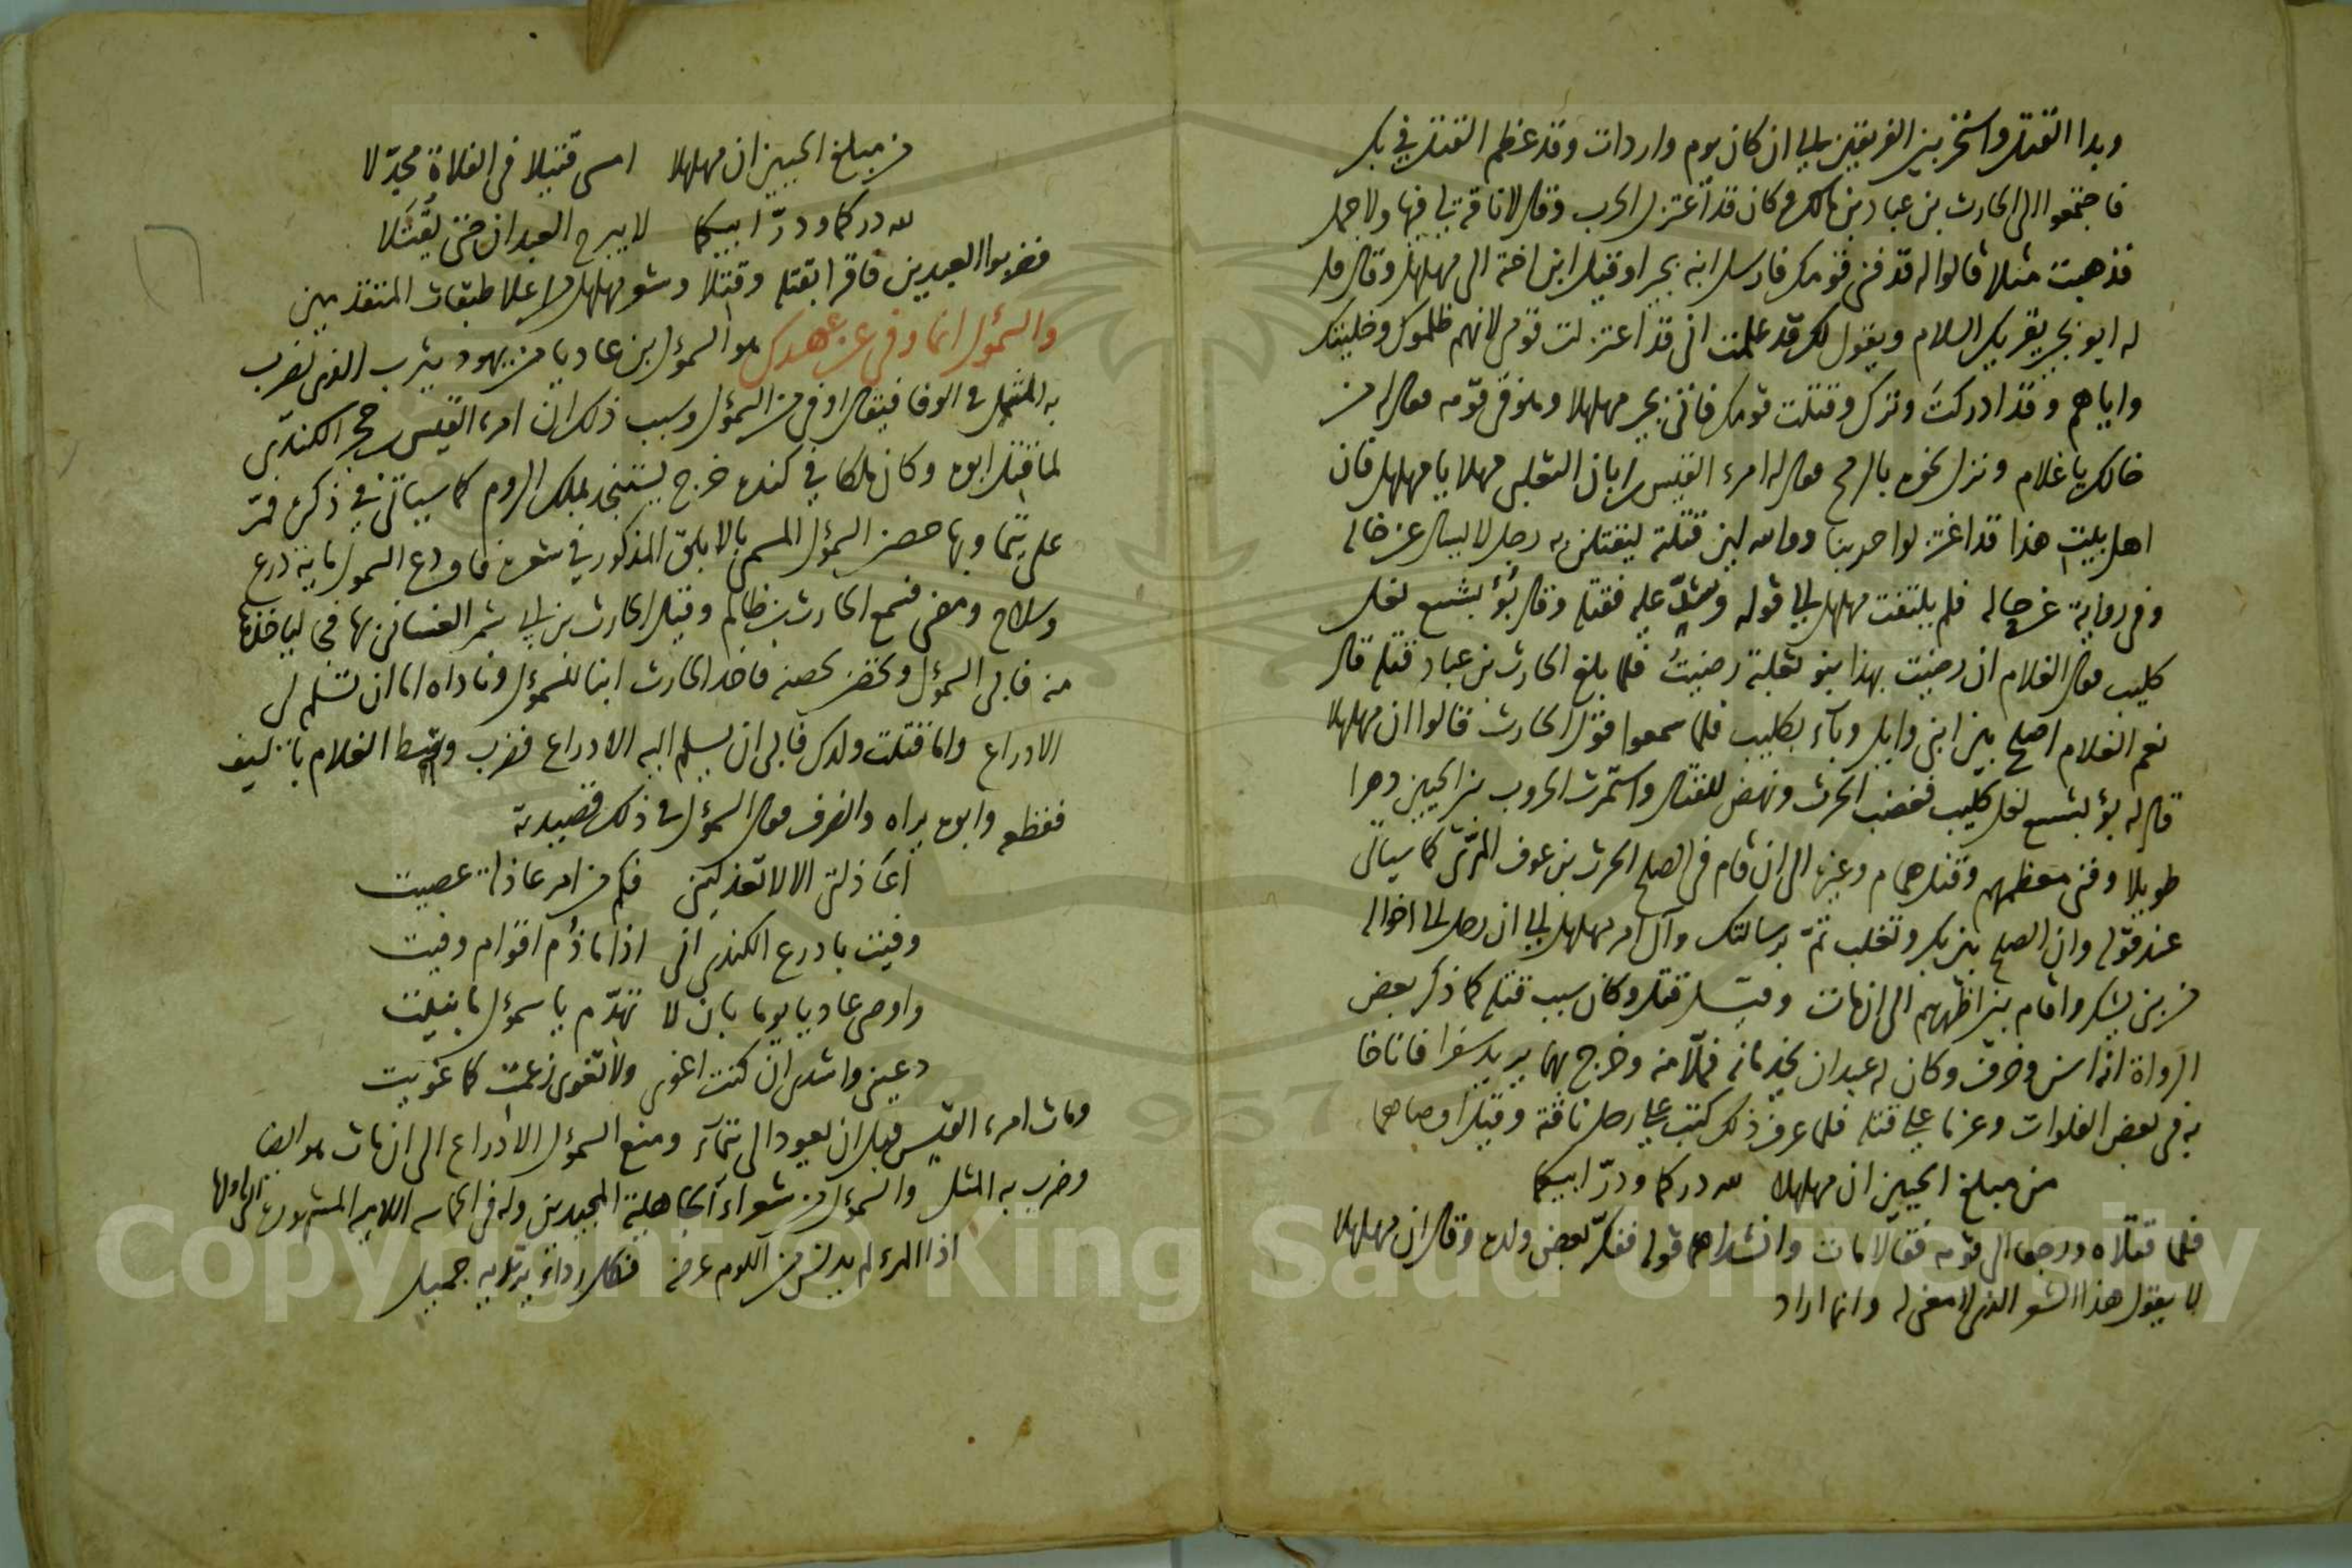 وبدا القتل واستحر بين الفريقين الى ان كان يوم واردات وقد عظم القتل في بكر
فاجتمعوا الى الحارث بن عباد بن مالك وكان قد اعتزل الحرب وقال لا ناقة لي فيها ولا جمل
فذهبت مثلا قالوا له قد فنى قومك فارسل ابنه بجيرا وقيل ابن اخته الى مهلهل وقال قل
له ابو بجير يقريك السلام ويقول لك قد علمت انى قد اعتزلت قومى لانهم ظلموك وخليتك
واياهم وقد ادركت وترك وقتلت قومك فاتى بجير مهلهلا وهو في قومه فقال له من
خالك يا غلام ونزل نحوه بالرمح فقال له امرء القيس بن ابان التغلبى مهلا يا مهلهل فان
اهل بيت هذا قد اعتزلوا حربنا ووالله لين قتلته ليقتلن به رجل لا ليسال عن خاله
وفى رواية عن حاله فلم يلتفت مهلهل الى قوله وشد عليه فقتله وقال بؤ بشسع نعل
كليب فقال الغلام ان رضيت بهذا بنو ثعلبة رضيت فلما بلغ الحارث بن عباد قتله قال
نعم الغلام اصلح بين ابنى وايل وبآء بكليب فلما سمعوا قول الحارث قالوا ان مهلهلا
قال له بؤ بشسع نعل كليب فغضب الحرث ونهض للقتال واستمرت الحروب بين الحيين دهرا
طويلا وفنى معظمهم وقتل همام وغيره الى ان قام فى الصلح الحرث بن عوف المرّى كما سياتى
عند قوله وان الصلح بين بكر وتغلب تمّ برسالتك وآل امر مهلهل الى ان رحل الى اخواله
من بنى يشكر واقام بين اظهرهم الى ان مات وقيل قتل وكان سبب قتله كما ذكر بعض
الرواة انه اسن وخرف وكان له عبدان يخدمانه فملّا منه وخرج بهما يريد سفرا فاناخا
به فى بعض الفلوات وعزما على قتله فلما عرف ذلك كتب على رحل ناقته وقيل اوصاهما
من مبلغ الحيين ان مهلهلا لله دركما ودرّ ابيكما
فلما قتلاه ورجعا الى قومه فقالا مات وانشداهم قوله ففكر بعض ولده وقال ان مهلهلا
لا يقول هذا الشعر الذى لا معنى له وانما اراد
من مبلغ الحيين ان مهلهلا امسى قتيلا فى الفلاة مجدّلا
لله دركما ودرّ ابيكما لا يبرح العبدان حتى يُقتَلا
فضربوا العبدين فاقرا بقتله وقتلا وشعر مهلهل من اعلا طبقات المتقدمين
والسموٴل انما وفى عن عهدك هو السموٴل بن عاديا من يهود يثرب الذى يضرب
به المثل فى الوفا فيقال اوفى من السموٴل وسبب ذلك ان امرء القيس بن حجر الكندى
لما قتل ابوه وكان ملكا في كنده خرج يستنجد بملك الروم كما سياتى في ذكره فمرّ
على تيما وبها حصن السموٴل المسمى بالابلق المذكور في شعره فاودع السموٴل ماية درع
وسلاح ومضى فسمع الحارث بن ظالم وقيل الحارث بن ابى شمر الغسانى بها فجا لياخذها
منه فابى السموٴل وتحصن بحصنه فاخذ الحارث ابنا للسموٴل وناداه اما ان تسلم لى
الادراع واما قتلت ولدك فابى ان يسلم اليه الادراع فضرب وسط الغلام بالسيف
فقطعه وابوه يراه وانصرف فقال السموٴل فى ذلك قصيدته
أعاذلتى الا لا تعذلينى فكم من امر عاذلة عصيت
وفيت بادرع الكندى انى اذا ما ذُم اقوام وفيت
واوصى عاديا يوما بان لا تهدّم يا سموٴل ما بنيت
دعينى وارشدى ان كنت اغوى ولا تغوى زعمت كما غويت
ومات امرء القيس قبل ان يعود الى تيمآء ومنع السموٴل الادراع الى ان مات هو ايضا
وضرب به المثل والسموٴل من شعراء الجاهلية المجيدين وله فى الحماسه اللاميه المشهورة التى اولها
اذا المرء لم يدنس من اللوم عرضه فكل رداء يرتديه جميل
Copyright © King Saud University
1957